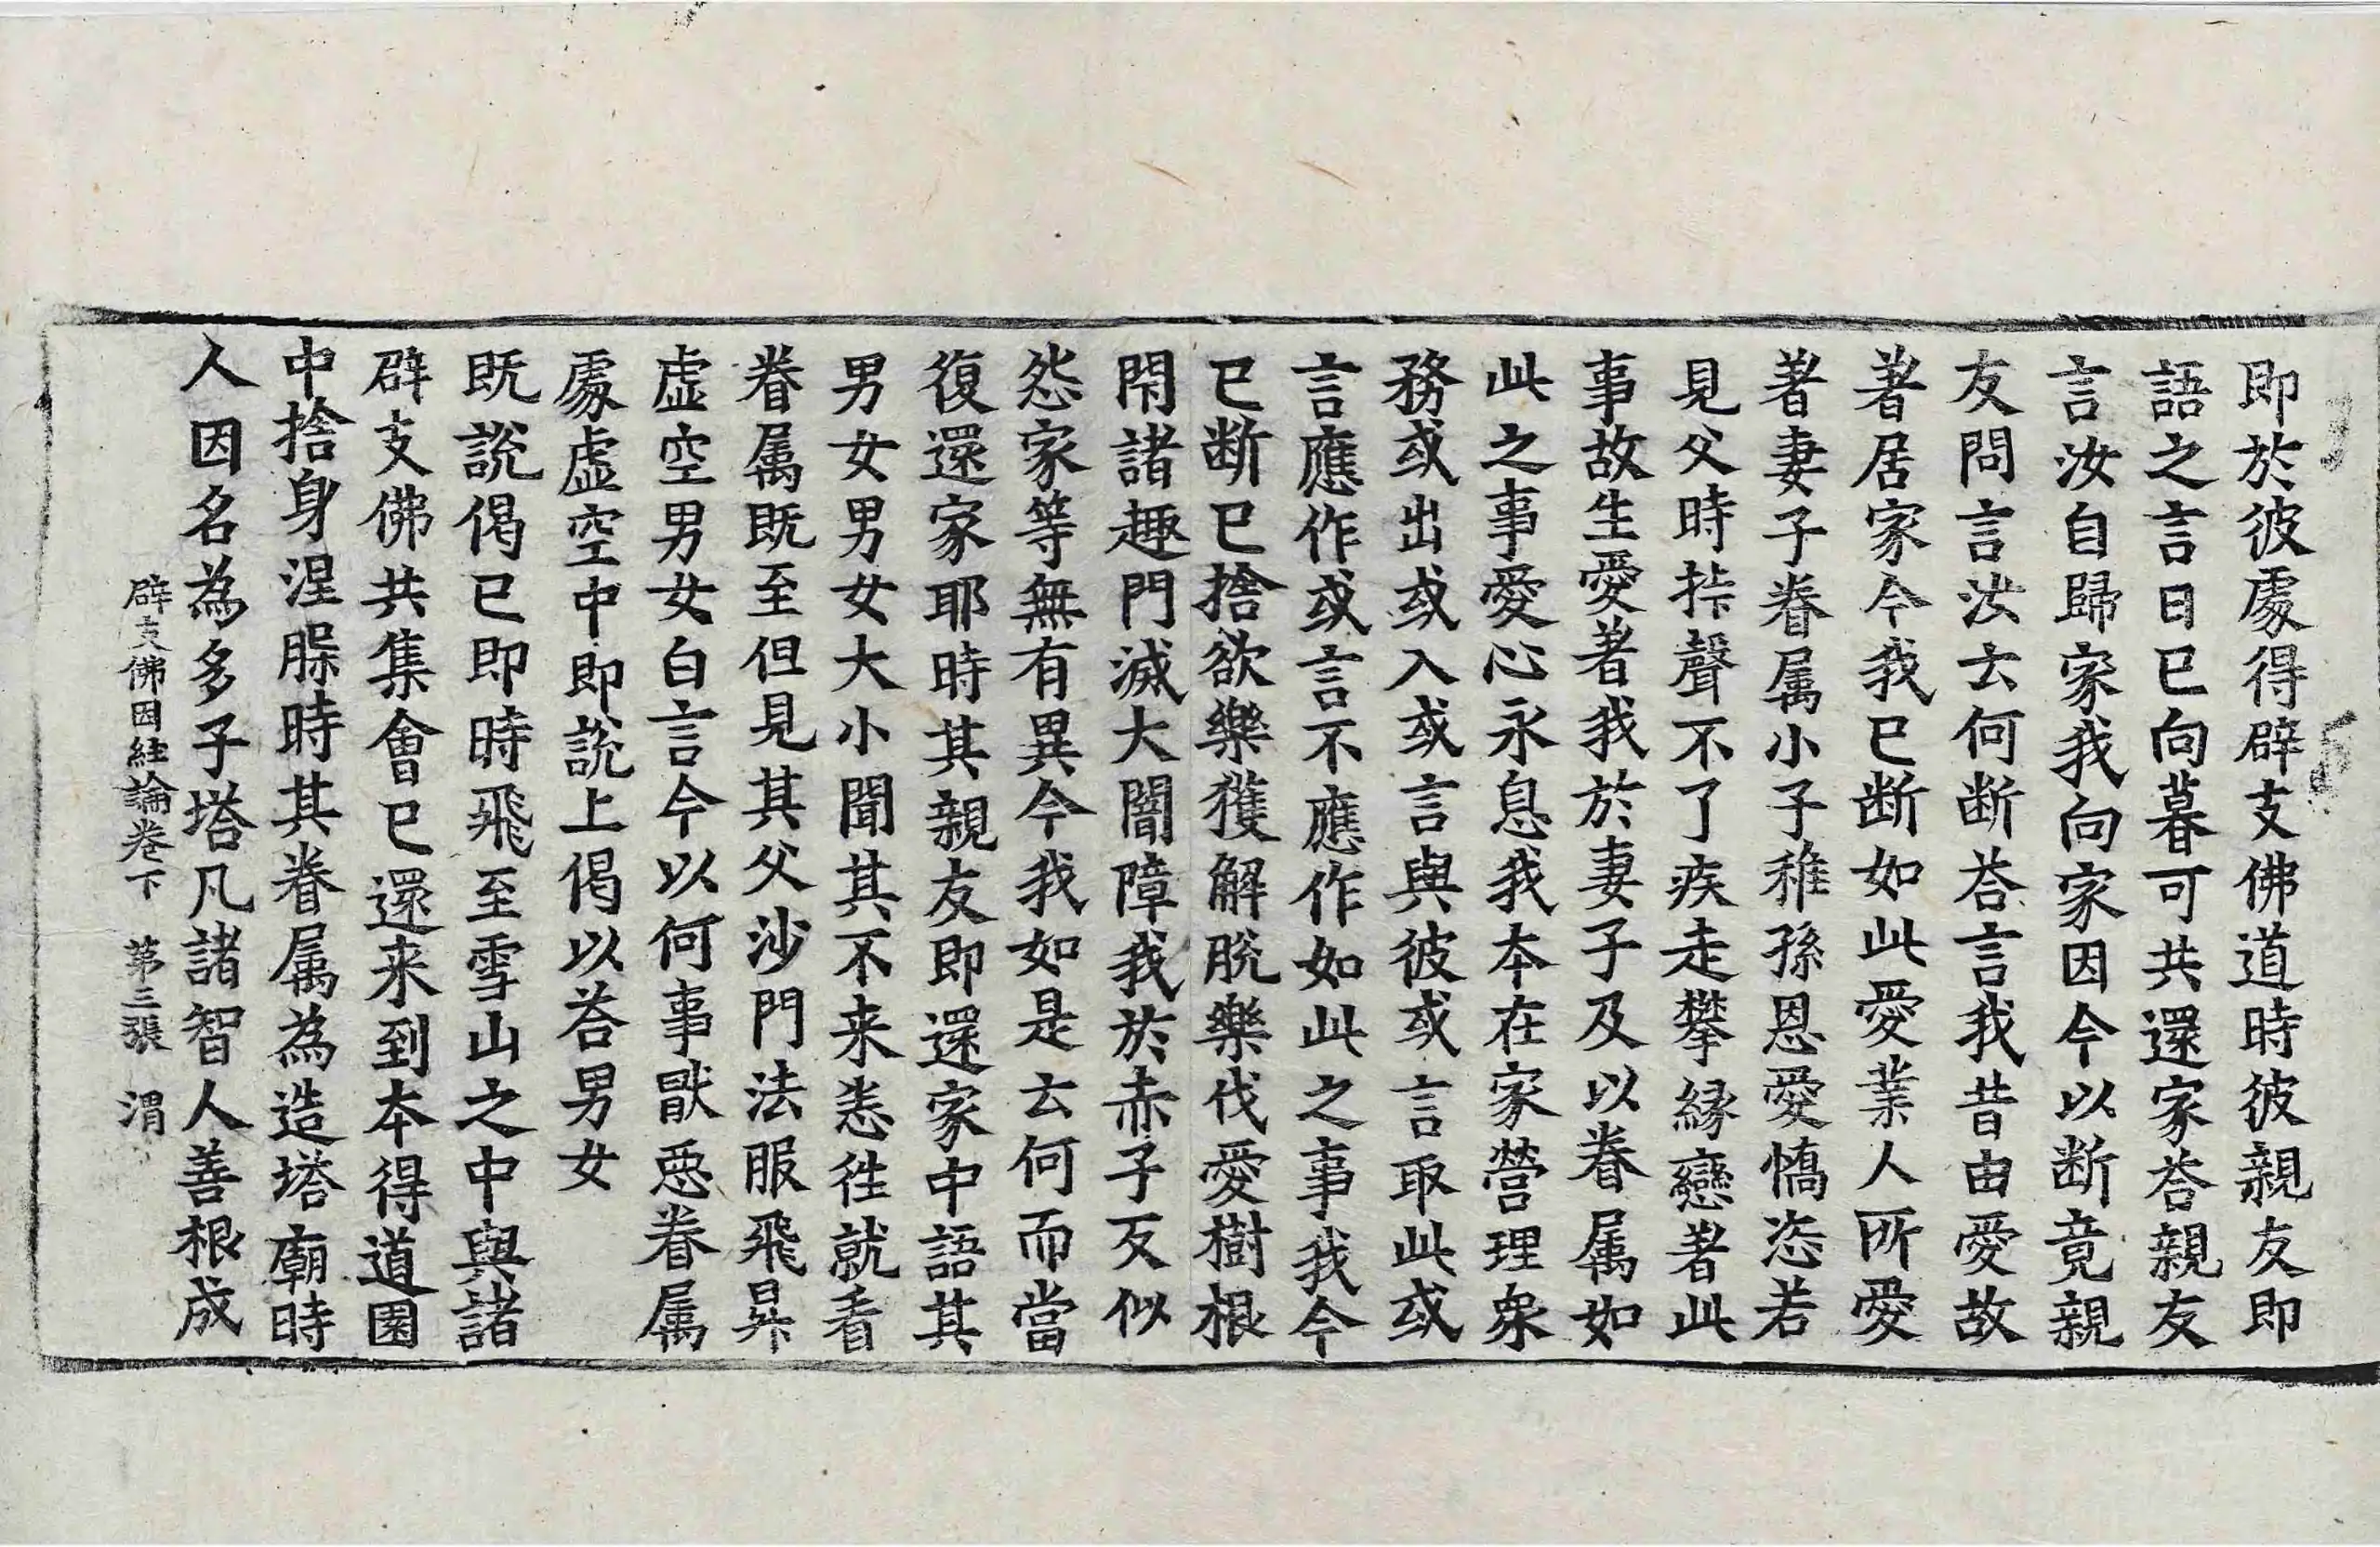 即於彼處得辟支佛道時彼親友即
語之言日已向暮可共還家荅親友
言汝自歸家我向家因今以断竟親
友問言汝云何断荅言我昔由愛故
著居家今我已断如此愛業人所愛
著妻子眷属小子稚孫恩愛憍恣若
見父時拤聲不了疾走攀縁戀著此
事故生愛著我於妻子及以眷属如
此之事愛心永息我本在家營理衆
務或出或入或言與彼或言取此或
言應作或言不應作如此之事我今
已断已捨欲樂獲解脫樂伐愛樹根
閇諸趣門滅大闇障我於赤子反似
怨家等無有異今我如是云何而當
復還家耶時其親友即還家中語其
男女男女大小聞其不来恚徃就看
眷属既至但見其父沙門法服飛昇
虚空男女白言今以何事猒惡眷属
處虚空中即說上偈以荅男女
既說偈已即時飛至雪山之中與諸
辟支佛共集會已還来到本得道園
中捨身涅槃時其眷属為造塔廟時
人因名為多子塔凡諸智人善根成
辟支佛因緣論卷下　第三張　渭